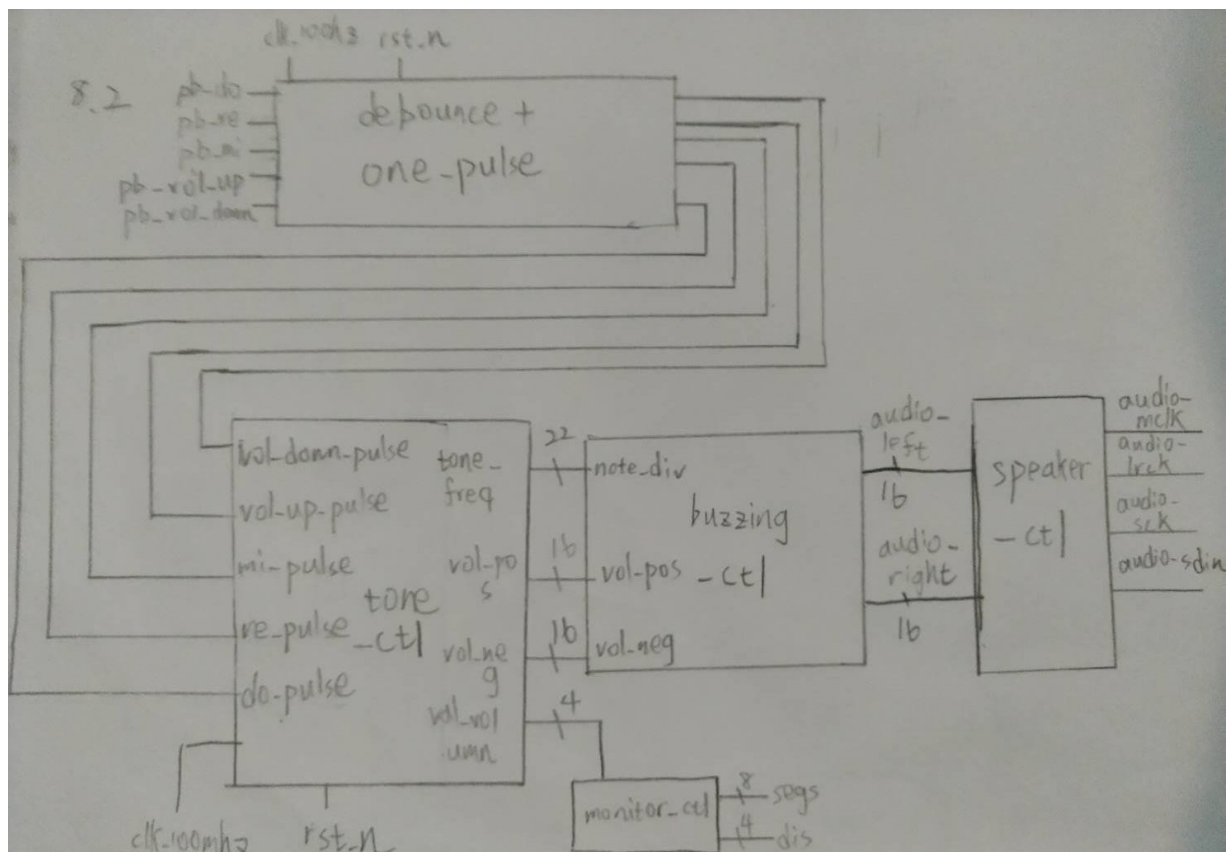 clk_100hz rst_n
8.2
pb_do
pb_re
pb_mi
pb_vol_up
pb_vol_down
debounce +
one_pulse
vol_down_pulse
vol_up_pulse
mi_pulse
re_pulse
do_pulse
tone
_ctl
tone_
freq
vol_po
s
vol_ne
g
val_vol
umn
clk_100mhz rst_n
22
16
16
4
note_div
vol_pos
vol_neg
buzzing
_ctl
audio_
left
16
audio_
right
16
speaker
_ctl
audio_
mclk
audio_
lrck
audio_
sck
audio_sdin
monitor_ctl
8
segs
4
dis